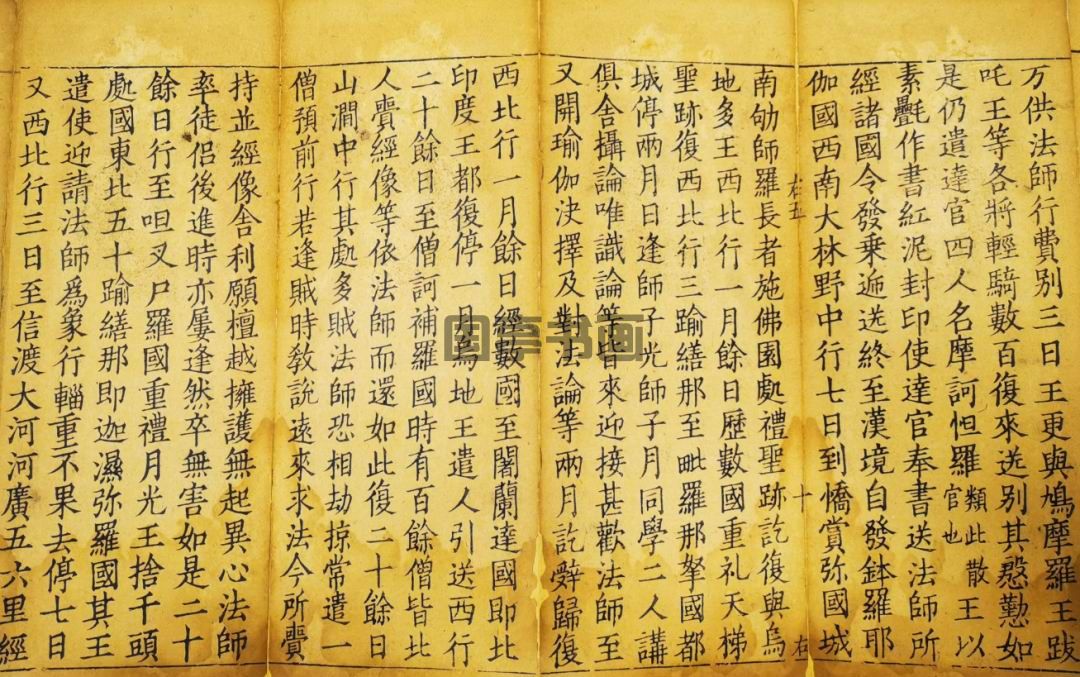 万供法師行費別三日王更與鳩摩羅王跋
吒王等各將輕騎數百復來送別其慇懃如
是仍遣達官四人名摩訶怛羅類此散官也王以
素疊作書紅泥封印使達官奉書送法師所
經諸國令發乗逓送終至漢境自發鉢羅耶
伽國西南大林野中行七日到憍賞弥國城
右五 十 右
南劬師羅長者施佛園處禮聖跡訖復與烏
地多王西北行一月餘日歷數國重礼天梯
聖跡復西北行三踰繕那至毗羅那拏國都
城停兩月日逢師子光師子月同學二人講
俱舍攝論唯識論等皆來迎接甚歡法師至
又開瑜伽決擇及對法論等兩月訖辭歸復
西北行一月餘日經數國至闍蘭達國即北
印度王都復停一月烏地王遣人引送西行
二十餘日至僧訶補羅國時有百餘僧皆北
人賫經像等依法師而還如此復二十餘日
山澗中行其處多賊法師恐相劫掠常遣一
僧預前行若逢賊時教説遠來求法今所賫
持並經像舍利願檀越擁護無起異心法師
率徒侣後進時亦屢逢然卒無害如是二十
餘日行至呾叉尸羅國重禮月光王捨千頭
處國東北五十踰繕那即迦濕弥羅國其王
遣使迎請法師爲象行輜重不果去停七日
又西北行三日至信渡大河河廣五六里經
国亭书画